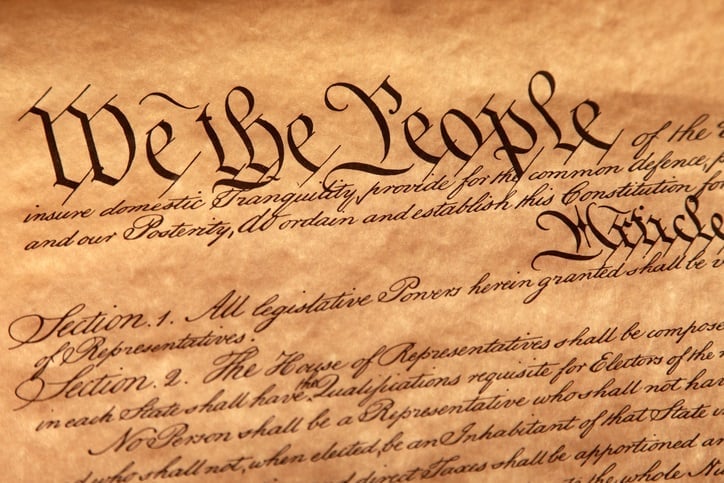 We the People of the
insure domestic Tranquility, provide for the common defence,
and our Posterity, do ordain and establish this Constitution for
Article
Section. 1. All legislative Powers herein granted shall be
of Representatives.
Section. 2. The House of Representatives shall be compose
the
in each State shall have Qualifications requisite for Electors of the
No Person shall be a Representative who shall not have
who shall not, when elected, be an Inhabitant of that State
direct Taxes shall be apportioned
the whole